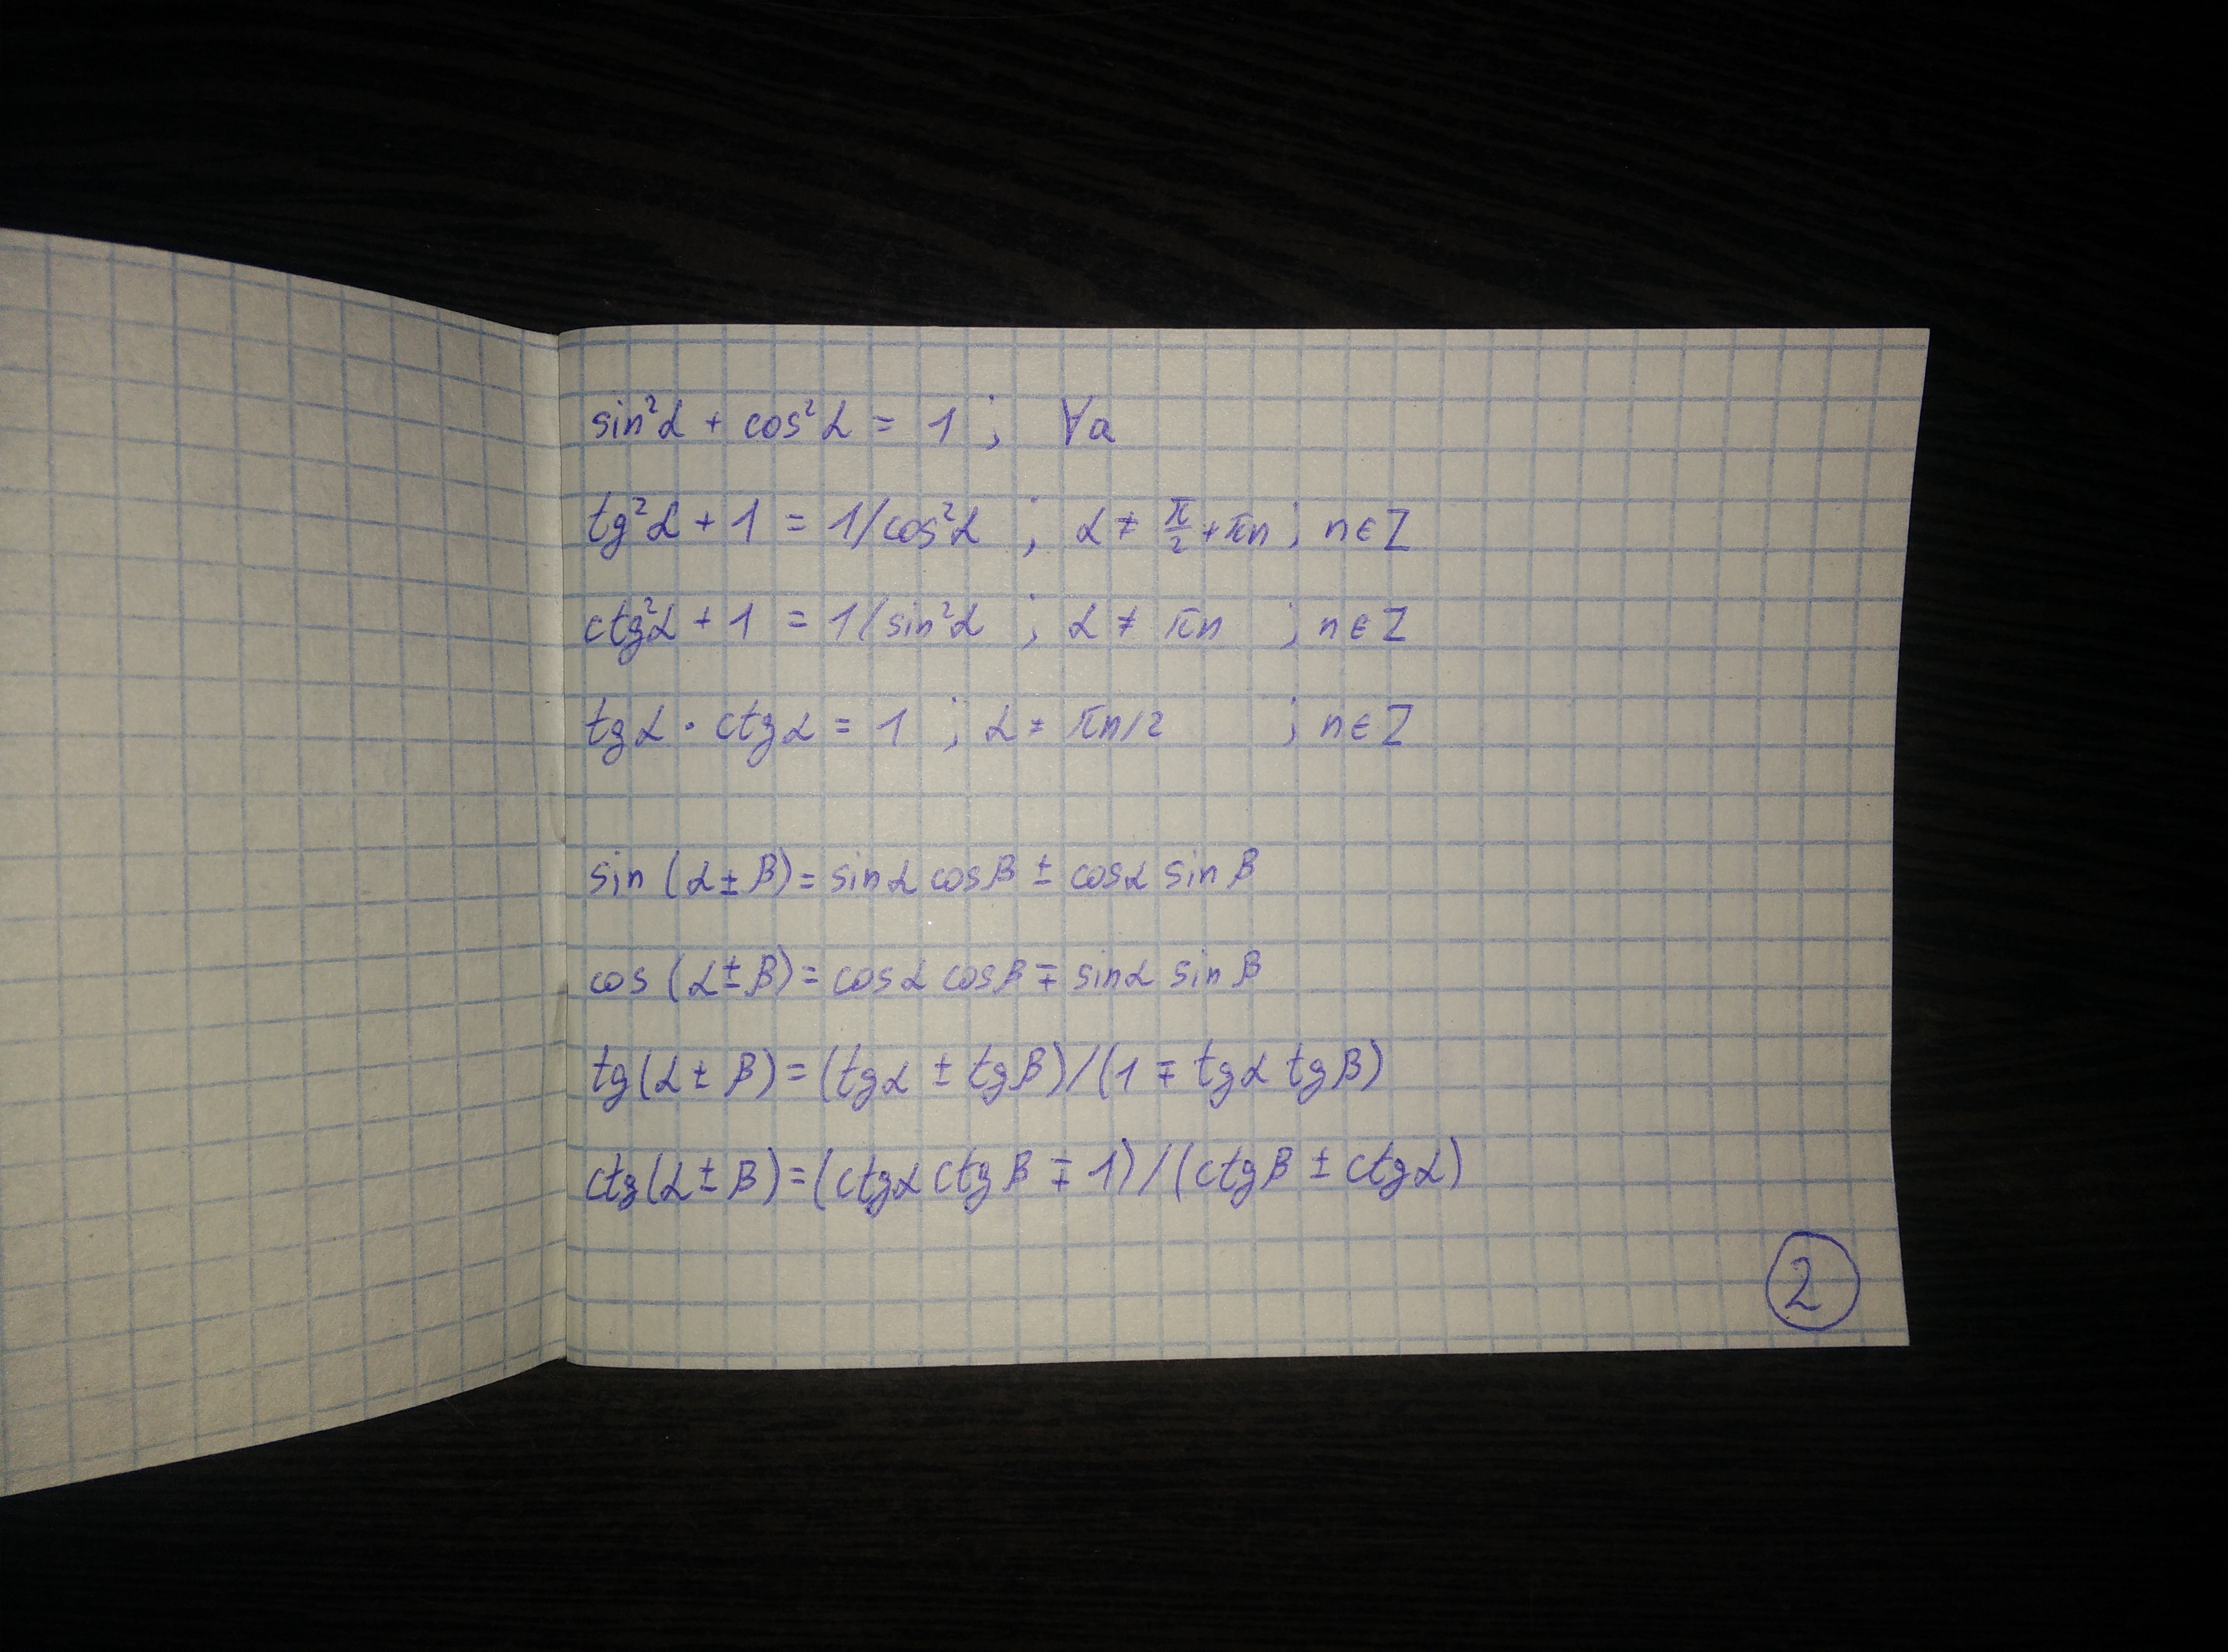 sin²α + cos²α = 1 ; ∀a
tg²α + 1 = 1/cos²α ; α ≠ π/2 + πn ; n ∈ Z
ctg²α + 1 = 1/sin²α ; α ≠ πn ; n ∈ Z
tgα · ctgα = 1 ; α ≠ πn/2 ; n ∈ Z
sin (α ± β) = sinα cosβ ± cosα sinβ
cos (α ± β) = cosα cosβ ∓ sinα sinβ
tg(α ± β) = (tgα ± tgβ)/(1 ∓ tgα tgβ)
ctg(α ± β) = (ctgα ctgβ ∓ 1)/(ctgβ ± ctgα)
2